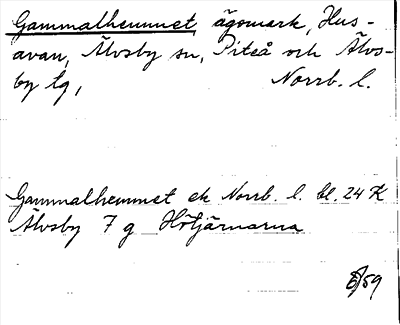 Gammalhemmet, ägomark, Hus-
avan, Älvsby sn, Piteå och Älvs-
by tg, Norrb. l.
Gammalhemmet ek Norrb. l. bl. 24 K
Älvsby 7 g Höljärnarna
/59